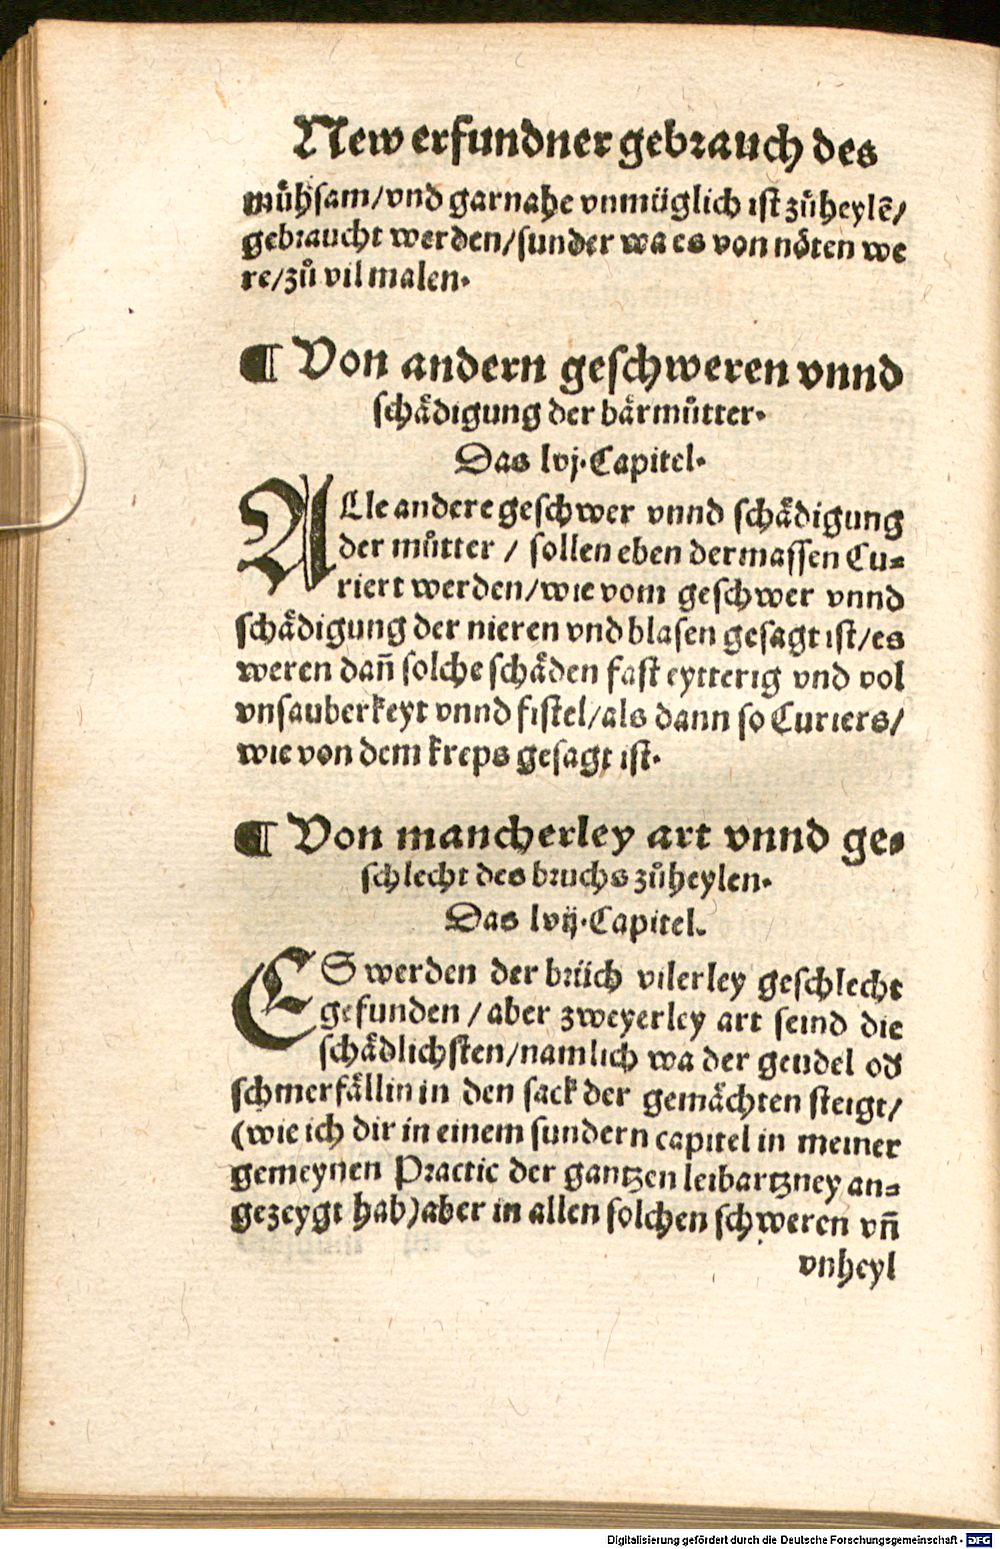 New erfundner gebrauch des
mühsam/vnd garnahe vnmüglich ist zůheylē/
gebraucht werden/sunder wa es von nöten we
re/zů vil malen.
¶ Von andern geschweren vnnd
schådigung der bärmůtter.
Das lvj. Capitel.
ALle andere geschwer vnnd schådigung
der můtter / sollen eben dermassen Cu-
riert werden/wie vom geschwer vnnd
schådigung der nieren vnd blasen gesagt ist/es
weren dañ solche schåden fast eytterig vnd vol
vnsauberkeyt vnnd fistel/als dann so Curiers/
wie von dem kreps gesagt ist.
¶ Von mancherley art vnnd ge-
schlecht des bruchs zůheylen.
Das lvij. Capitel.
ES werden der brüch vilerley geschlecht
gefunden / aber zweyerley art seind die
schådlichsten/namlich wa der geudel oď
schmerfållin in den sack der gemåchten steigt/
(wie ich dir in einem sundern capitel in meiner
gemeynen Practic der gantzen leibartzney an-
gezeygt hab)aber in allen solchen schweren vñ
vnheyl
Digitalisierung gefördert durch die Deutsche Forschungsgemeinschaft - DFG